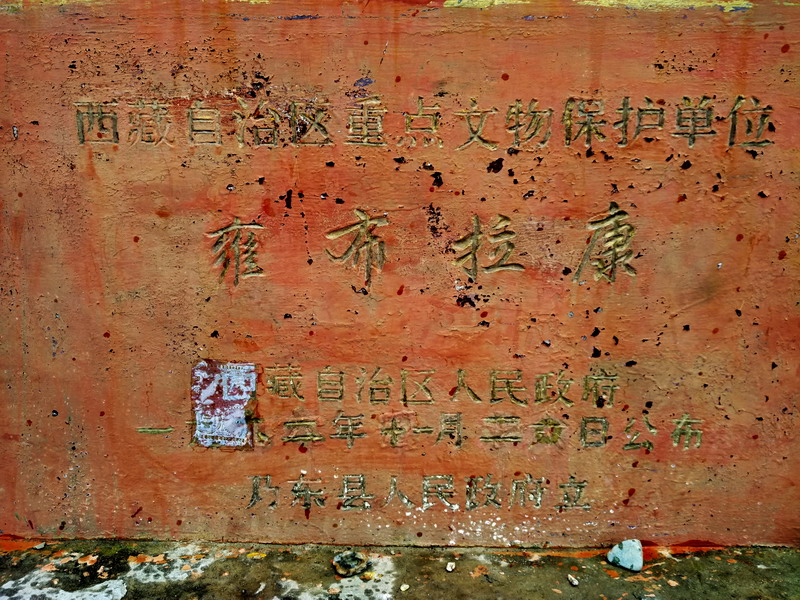 西藏自治区重点文物保护单位
雍布拉康
藏自治区人民政府
一 年十一月二十 日公布
乃东县人民政府立